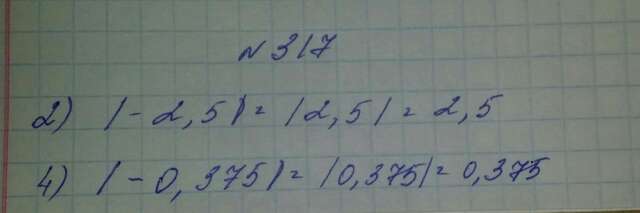 №317
2) |-2,5|= |2,5| = 2,5
4) |-0,375|= |0,375|= 0,375